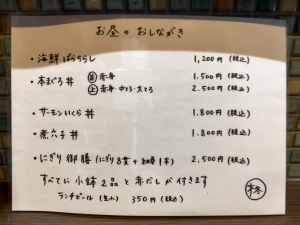 お昼のおしながき
・海鮮ばらちらし 1,200円(税込)
・本まぐろ丼 並 赤身 1,500円(税込)
上 赤身・中とろ・大とろ 2,500円(税込)
・サーモンいくら丼 1,800円(税込)
・煮穴子丼 1,800円(税込)
・にぎり御膳(にぎり8貫+細巻1本) 2,500円(税込)
すべてに小鉢2品と赤だしが付きます
ランチビール(生小) 350円(税込)
柊